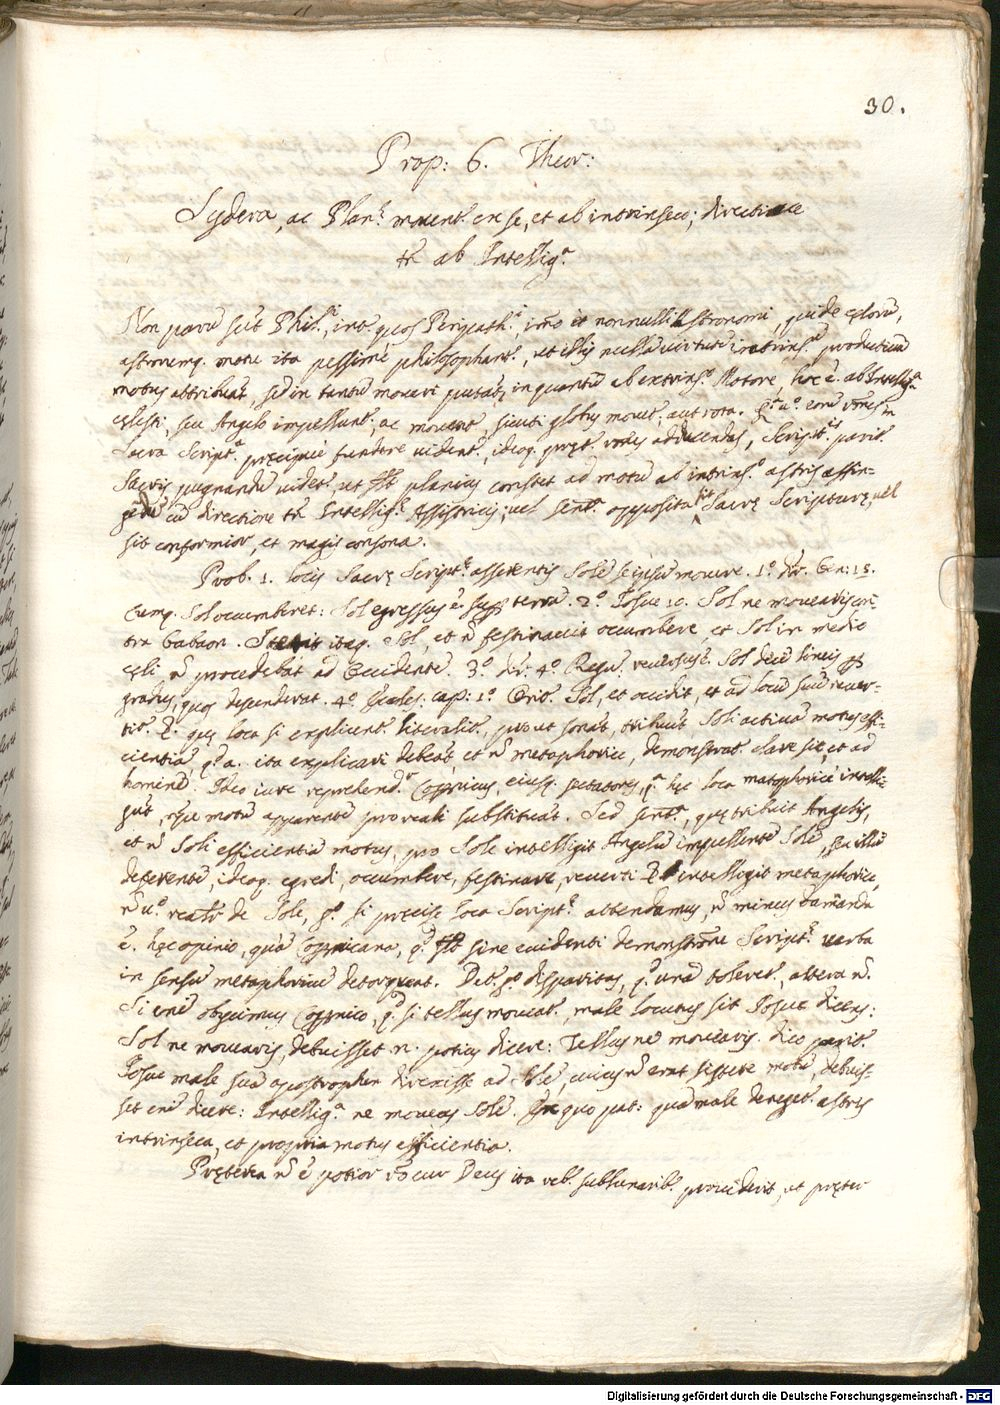 30.
Prop: 6. Theor:
Sydera, ac Plan.ᵉ movent.ʳ ex se, et ab intrinseco; directive
tñ ab Intellig.ᵃ
Non parū sūt Phil.ⁱ, int.ʳ quos Peripath.ⁱ, imò et nonnulli Astronomi, qui de cęlorū,
astrorumq. motu ita pessimè philosophant.ʳ, ut illis nullā virtutē intrins.ᵃ productivā
motus attribuāt, sed in tantū moveri putāt, inquantū ab extrins.º Motore, hoc ē ab Intellig.ᵃ
cęlesti, seu Angelo impellunt.ʳ, ac movent.ʳ, sicuti globus movet.ʳ, aut rota. eorū rōnes in
Sacra Script.ᵃ pręcipuè fundere vident.ʳ, ideoq. pręt.ʳ rōnes adducendas, Script.ⁱˢ parit.ʳ
Sacris pugnandū videt.ʳ, ut planius constet ad motū ab intrins.º astris affin-
gēdū cū directione tñ Intellig.ᵉ Assistricis; vel sent.ᵃ opposita sit Sacrę Scripturę, vel
sit conformior, et magis consona.
Prob. 1. locis Sacrę Script.ᵉ asserentis Solē seipsū movere. 1.º dr̄. Gen: 15.
Cumq. Sol occumberet: Sol egressus ē sup terrā. 2.º Josue 10. Sol ne movearis con-
tra Gabaon. Stetit itaq. Sol, et ñ festinavit occumbere, et Sol in medio
cęli ñ procedebat ad Occidentē. 3.º dr̄. 4.º Regū. reversus ē Sol decē lineis p
gradus, quos descenderat. 4.º Eccles. cap: 1.º Orit.ʳ Sol, et occidit, et ad locū suū rever-
tit.ʳ quę loca si explicent.ʳ literalit.ʳ, prout sonāt, tribuūt Soli activā motus effi-
cientiā ita explicari debeāt, et ñ metaphoricè, demonstrat.ʳ clare sic, et ad
hominē. Ideo iure reprehend.ʳ Copnicus, eiusq. sectatores, q.ᵃ hęc loca metaphoricè intelli-
gūt, motū apparentē pro reali substituāt. Sed sent.ᵃ, quę tribuit Angelis,
et ñ Soli efficientiā motus, pro Sole intelligit Angelū impellentē Solē, illū
deferentē, ideoq. egredi, occumbere, festinare, reverti intelligit metaphoricè,
ñ v.º realit.ʳ de Sole, g.º si pręcisè loca Script.ᵉ attendamus, ñ minus damnanda
ē hęc opinio, quā Copnicana, q.ᵃ sine evidenti demonstrōne Script.ᵉ verba
in sensū metaphoricū detorqueat. Det.ʳ g.º disparitas, q.ᵃ una toleret.ʳ, altera ñ.
Si enī obijcimus Copnico, q.ᵈ si tellus moveat.ʳ, male locutus sit Josue dicens:
Sol ne movearis, debuisset .n. potius dicere: Tellus ne movearis. dico parit.ʳ
Josue male suā apostrophen direxisse ad Solē, cuius ñ erat sistere motū, debuis-
set enī dicere: Intellig.ᵃ ne moveas Solē. Ex quo pat: quā male deneget.ʳ astris
intrinseca, et propria motus efficientia.
Pręterea ñ ē potior rō cur Deus ita reb.ˢ sublunarib.ˢ providerit, ut pręter
Digitalisierung gefördert durch die Deutsche Forschungsgemeinschaft - DFG